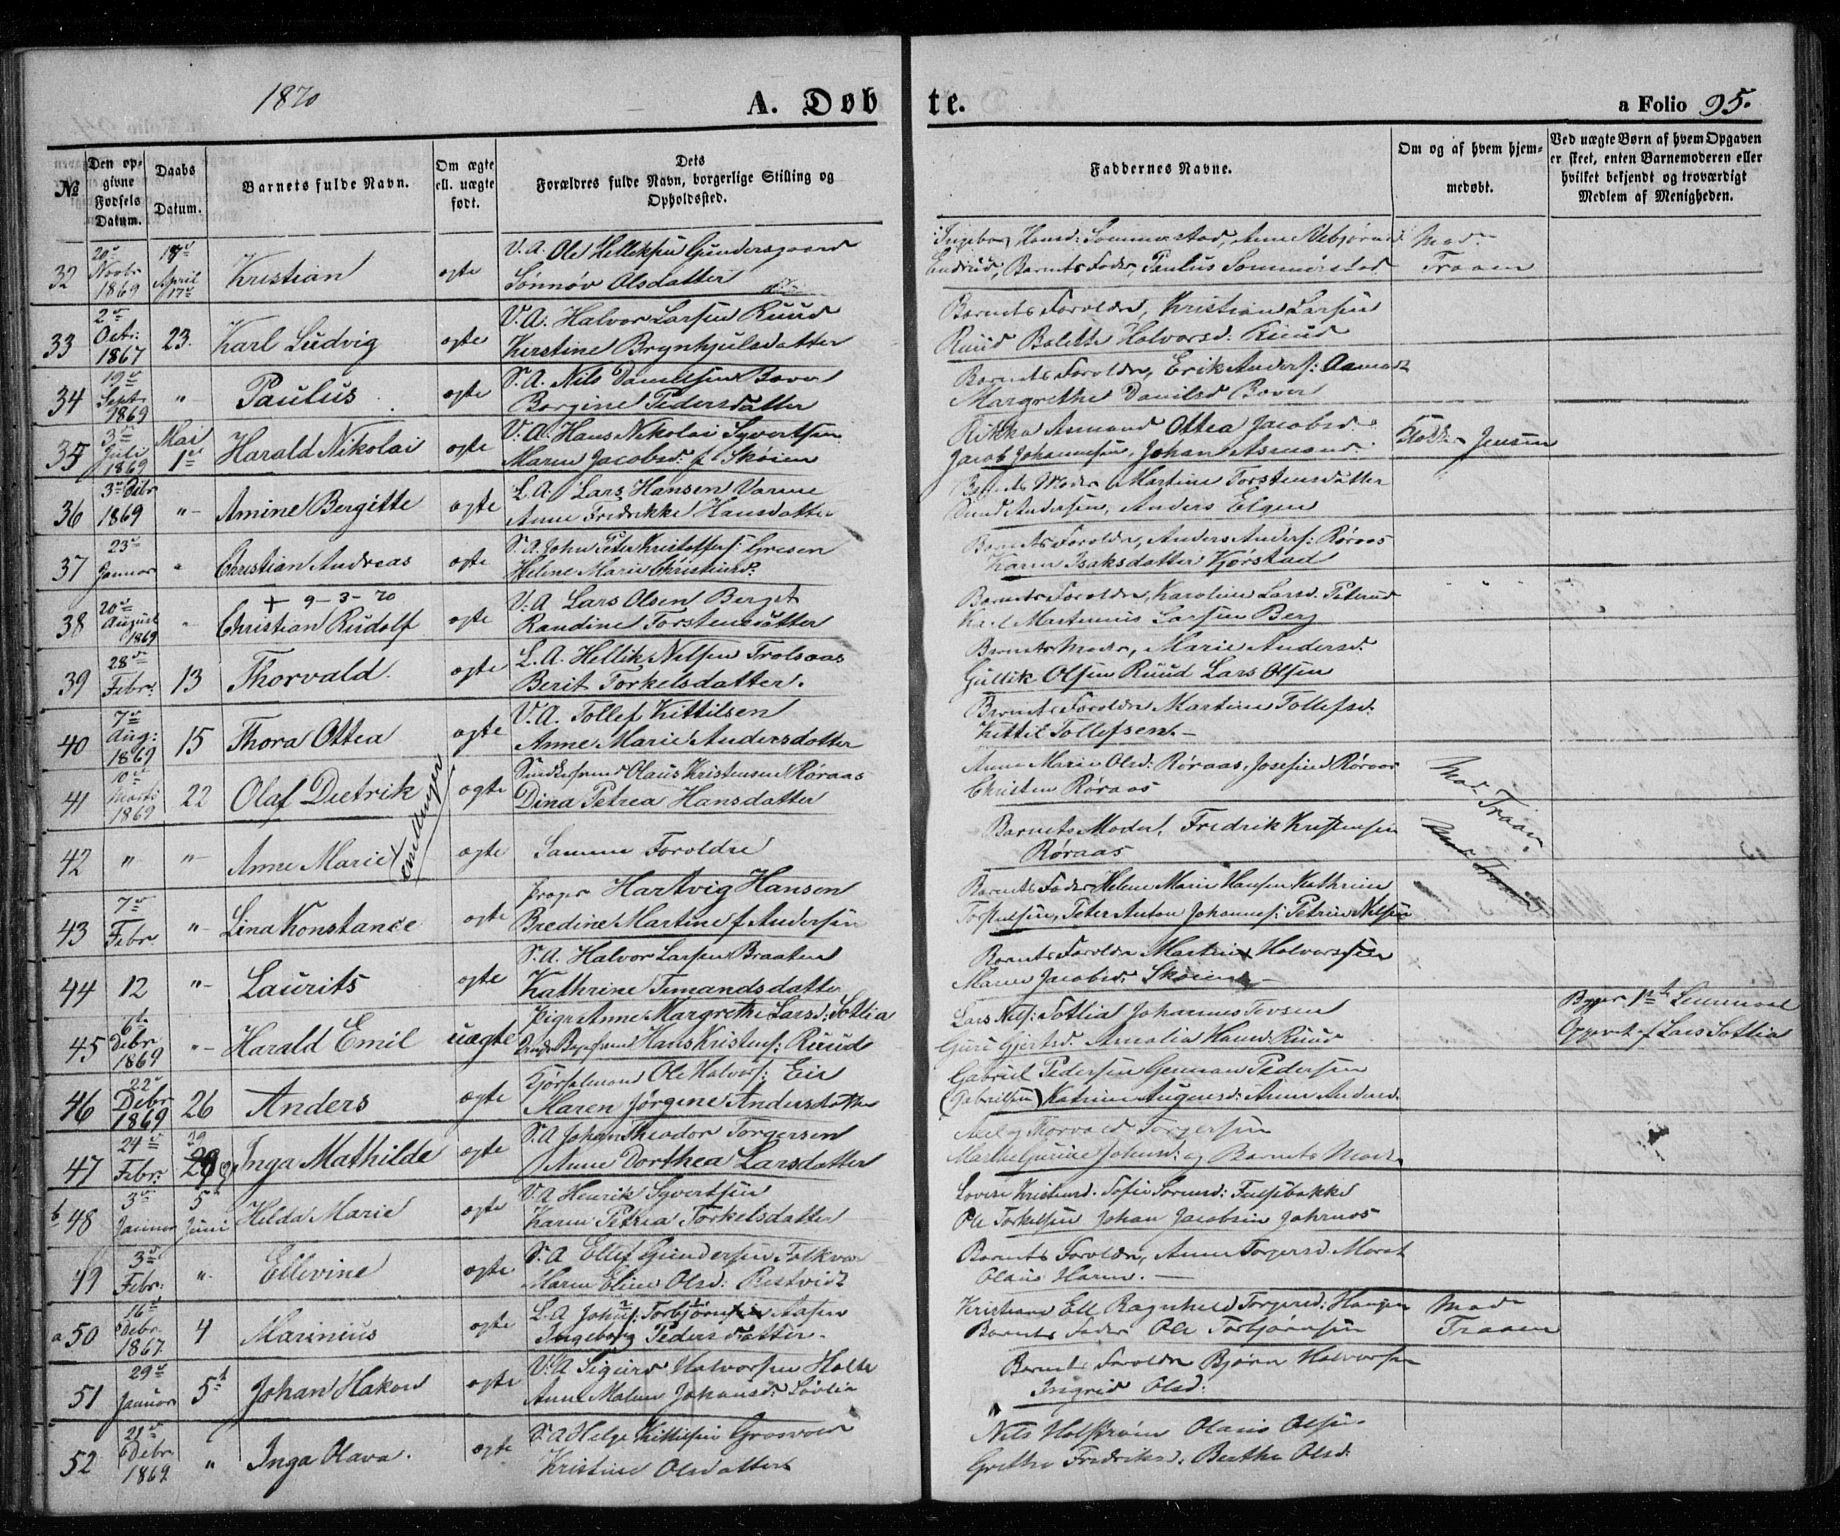 1870 A. Døbte. a Folio 95.
№ Den opgivne Fødsels Datum. Daabs Datum. Barnets fulde Navn. Om ægte ell. uægte født. Dets Forældres fulde Navn, borgerlige Stilling og Opholdssted. Faddernes Navne. Om og af hvem hjemmedøbt. Ved uægte Børn af hvem Opgaven er skeet, enten Barnemoderen eller hvilket bekjendt og troværdigt Medlem af Menigheden.
32 20de Novbr 1869 April 17de Kristian ægte V. A. Ole Helliksen Gundersgaard
Sønnøv Olsdatter
Barnets Fader, Paulus Sommerstad
Mad. Traaen
33 2de Oct: 1867 23. Karl Ludvig ægte V. A. Halvor Larsen Ruud
Kirstine Brynhjulsdatter
Barnets Forældre, Kristian Larsen
Ruud Balette Halvorsd. Ruud
34 19de Sept. 1869 " Paulus ægte S. A. Nils Danielsen Bover
Borgine Pedersdatter
Barnets Forældre, Erik Anders: Aamodt
Margrethe Danilsd Bover
35 3de Juli 1869 Mai 1ste Harald Nikolai ægte V. A. Hans Nikolai Syvertsen
Maren Jacobsd. f Skoien
Rikka Asmand Ottea Jacobsd
Jacob Johannesen, Johan Asmand
Jensen
36 3de Debr 1869 " Amine Bergitte ægte L. A. Lars Hansen Varme
Anne Fredrikke Hansdatter
Barnets Moder Martine Torstensdatter
Andersen, Anders Elgen
37 23de Januar " Christian Andreas ægte S. A. John Peter Kristoffers: Gresen
Helene Marie Christiansd.
Barnets Forældre, Anders Anders: Røraas
Karen Isaksdatter Kjørstad
+ 9-3-70
38 20de August 1869 " Christian Rudolf ægte V. A. Lars Olsen Berget
Randine Torstensdatter
Barnets Forældre, Karoline Larsd.
Karl Martinius Larsen Berg
39 28de Febr: 13 Thorvald. ægte L. A. Hellik Nilsen Trolsaas
Berit Torkelsdatter.
Barnets Moder, Marie Andersd.
Gullik Olsen Ruud Lars Olsen
40 7de Aug: 1869 15 Thora Ottea ægte V. A. Tollef Kittilsen
Anne Marie Andersdatter
Barnets Forældre Martine Tollefsd.
Kittil Tollefsen.
41 10de Marts 1869 22 Olaf Dietrik ægte Olaus Kristensen Røraas
Dina Petrea Hansdatter
Anne Marie Olsd: Røraas, Josefine Røraas
Christen Røraas
Mad. Traaen
42 " " Anne Marie ægte Samme Forældre
Barnets Moder, Fredrik Kristensen
Røraas
43 7de Febr " Lina Konstance ægte Hartvig Hansen
Bredine Martine f Andersen
Barnets Fader Helene Marie Hansen Kathrine
Torkelsen, Peter Anton Johannes: Petrine Nilsen
44 12 " Laurits ægte S. A. Halvor Larsen Braaten
Kathrine Timandsdatter
Barnets Forældre Martin Halvorssen
Maren Jacobsd. Skoien
45 6te Debr 1869 " Harald Emil uægte Pige Anne Margrethe Larsd: Sotlia
Hans Kristens: Ruud
Lars Nils: Sotlia Johannes Iversen
Guri Gjertsd. Amalia Hansd: Ruud
Opgivet af Lars Sotlia
46 22de Debr 1869 26 Anders ægte Kjørselmand Ole Halvors: Eie
Maren Jørgine Andersdatter
Gabriel Pedersen German Pedersen
(Gabrielsen) Katrine Augusd: Anne Andersd.
47 24de Febr: 29 Inga Mathilde ægte S. A. Johan Theodor Torgersen
Anne Dorthea Larsdatter
Axel og Thorvald Torgersen
og Barnets Moder
b 48 3de Januar 5te Juni Hilda Marie ægte V. A. Henrik Syvertsen
Karen Petrea Torkelsdatter
Lovise Kristiansd. Sofie Sørensd: Falsebakke
Ole Torkelsen Johan Jacobsen
49 3de Febr: " Ellevine ægte S. A. Ellef Gundersen
Maren Eline Olsd:
Barnets Forældre, Anne Torgersd.
50 16de Debr. 1867. 4 Marinius ægte L. A. Johs: Torbjørnsen Aasen
Ingeborg Pedersdatter.
Ragnhild Torgersd:
Barnets Fader Ole Torbjørnsen
Mad. Traaen
51 29de Januar 5te Johan Hakon ægte V. A. Sigurd Halvorsen Holte
Anne Malene Johansd: Løvlia
Barnets Forældre Bjørn Halvorsen
Ingrid Olsd:
52 21de Debr 1869 " Inga Olava. ægte S. A. Helge Kittilsen Grosvold
Kristine Olsdatter
Nils Holstrøm Olaus Olsen
Grethe Fredriksd. Berthe Olsd: